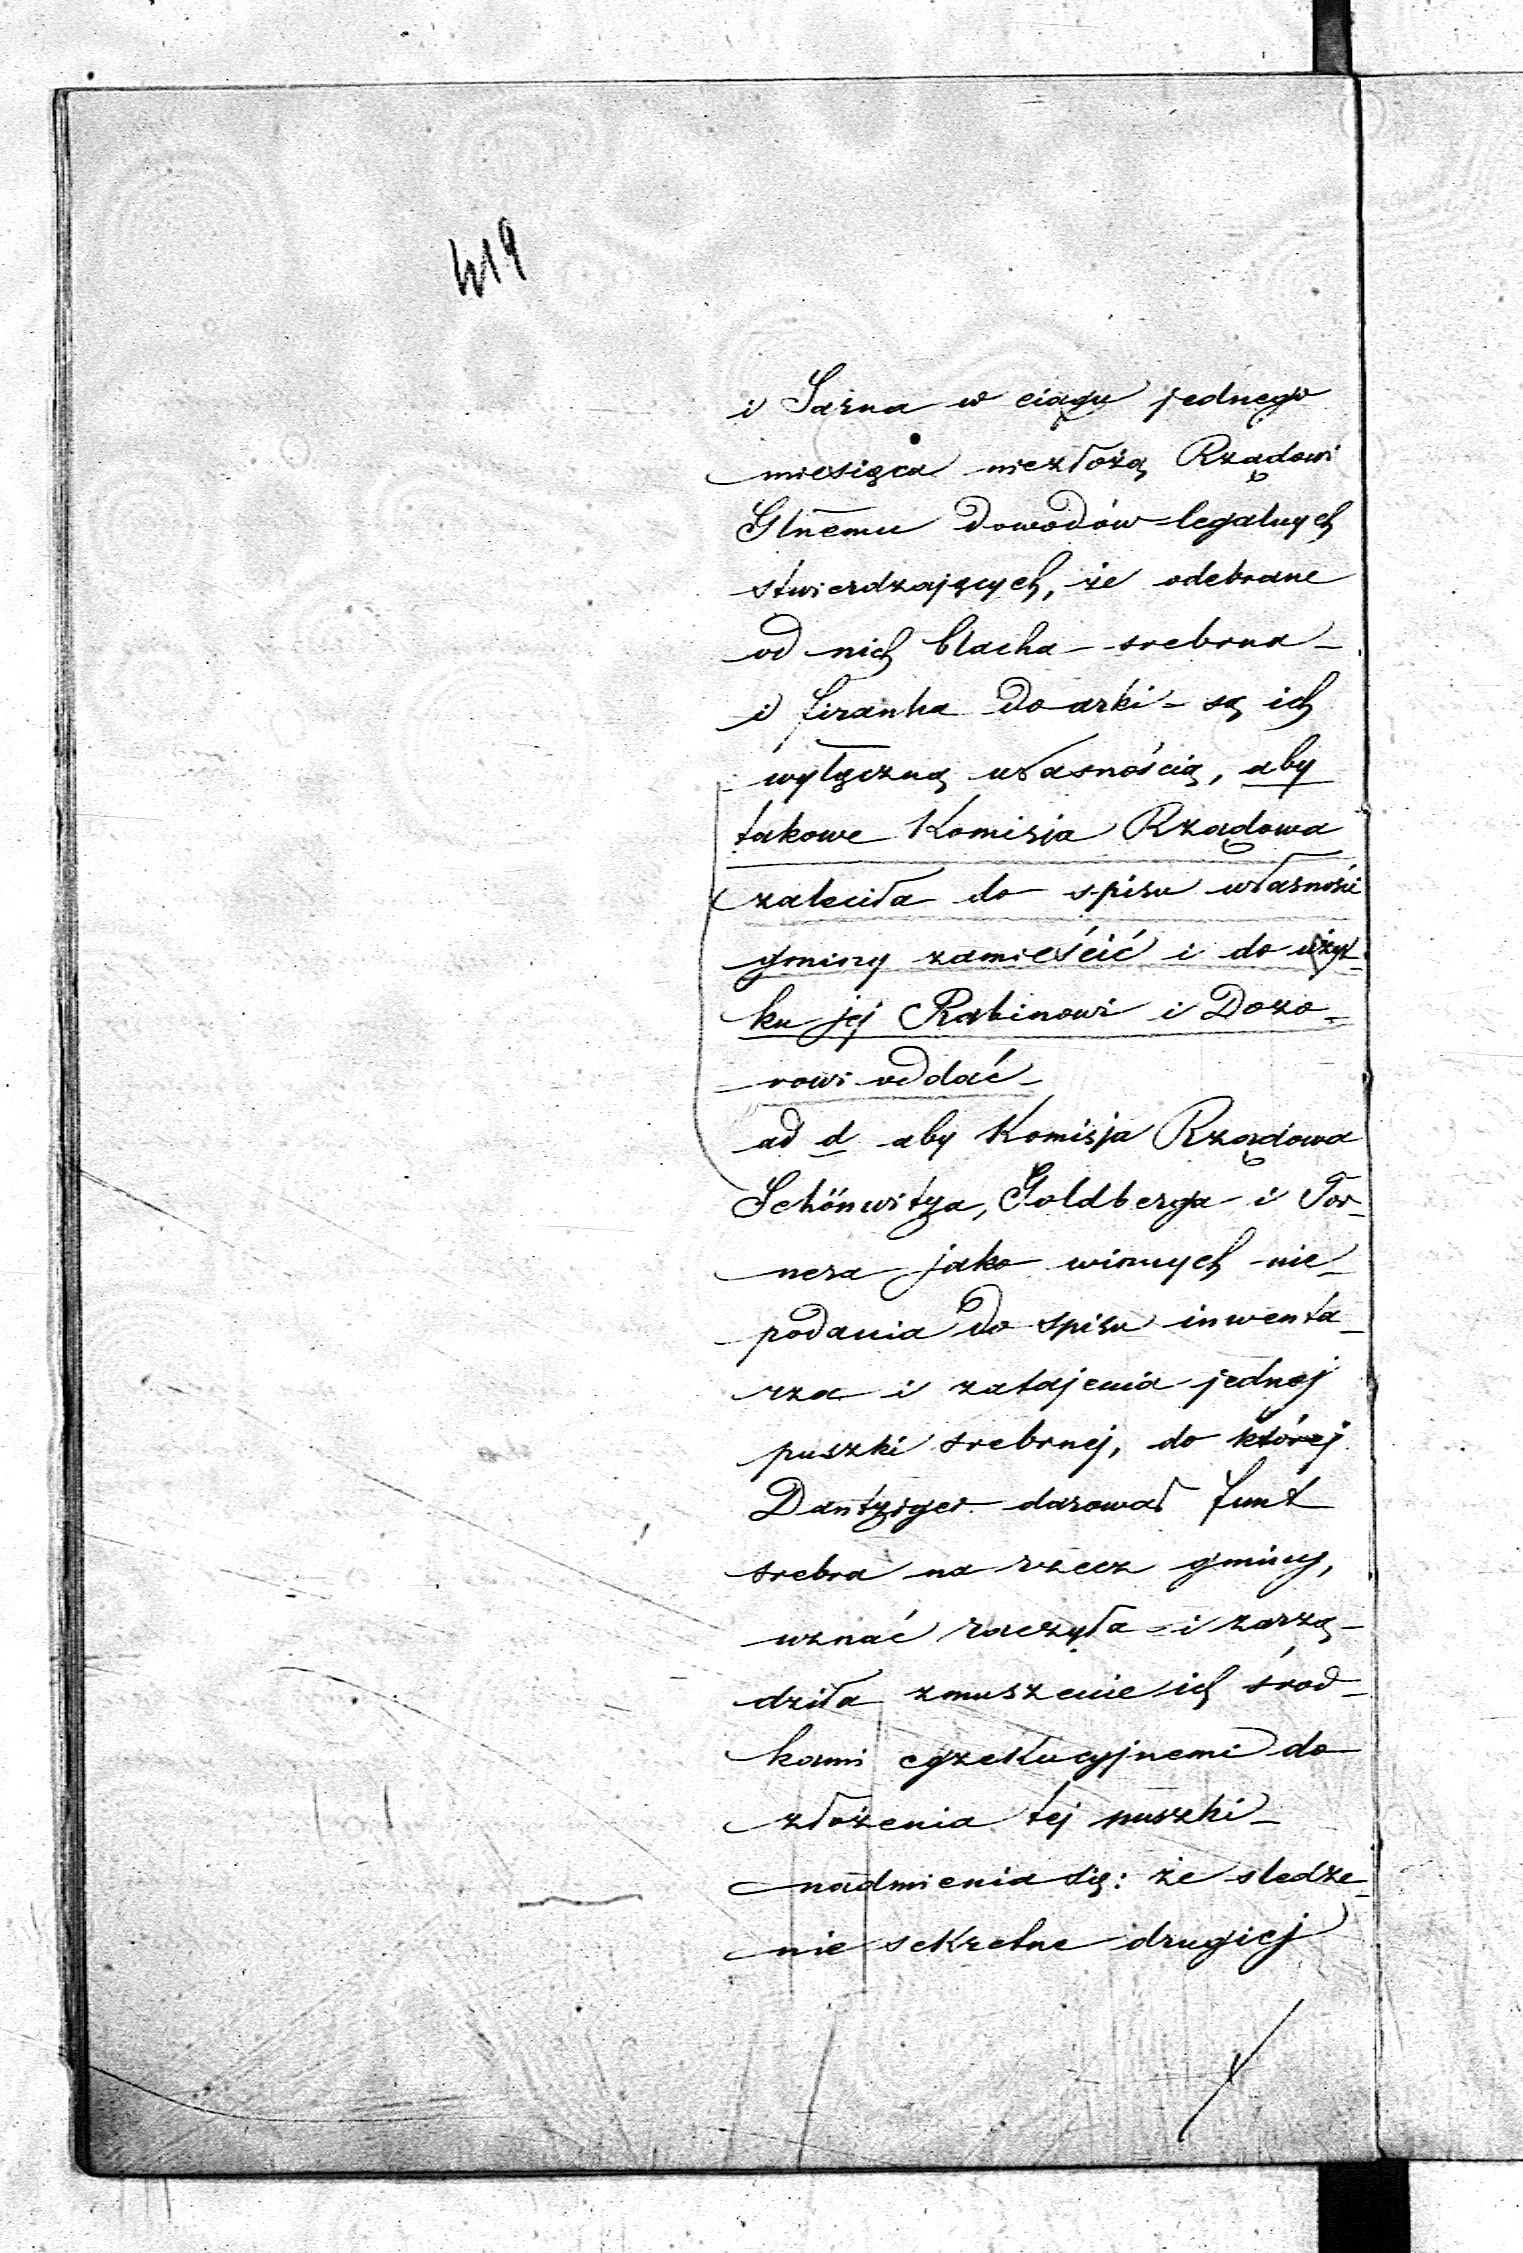 419
i Sarna w ciągu jednego
miesiąca niezłożą Rządowi
Glnemu dowodów legalnych
stwierdzających, że odebrane
od nich blacha srebrna
i firanka do arki - są ich
wyłączną własnością, aby
takowe Komisja Rządowa
zaleciła do spisu własności
gminy zamieścić i do użyt-
ku jej Rabinowi i Dozo-
rowi oddać -
ad d aby Komisja Rządowa
Schönwitza, Goldberga i Tor-
nera jako winnych nie-
podania do spisu inwenta-
rza i zatajenia jednej
puszki srebrnej, do której
Dantziger darował funt
srebra na rzecz gminy,
uznać raczyła - i zarzą-
dziła zmuszenie ich środ-
kami egzekucyjnemi do
złożenia tej puszki -
nadmienia się: że śledze-
nie sekretne drugiej